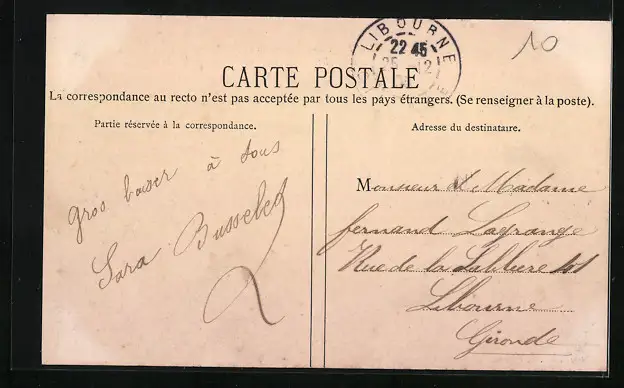 LIBOURNE
22 45
25 12
10
CARTE POSTALE
La correspondance au recto n'est pas acceptée par tous les pays étrangers. (Se renseigner à la poste).
Partie réservée à la correspondance.
Gros baiser à tous
Sara
Adresse du destinataire.
Monsieur et Madame
fernand Lagrange
Rue de la
Libourne
Gironde